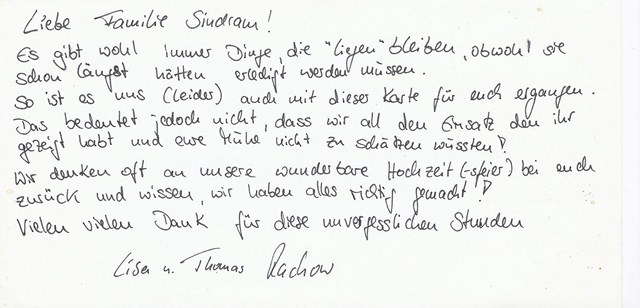 Liebe Familie Sindram!
Es gibt wohl immer Dinge, die "liegen" bleiben, obwohl sie
schon längst hätten erledigt werden müssen.
So ist es uns (leider) auch mit dieser Karte für euch ergangen.
Das bedeutet jedoch nicht, dass wir all den Einsatz den ihr
gezeigt habt und eure Mühe nicht zu schätzen wüssten!
Wir denken oft an unsere wunderbare Hochzeit(-sfeier) bei euch
zurück und wissen, wir haben alles richtig gemacht!
Vielen vielen Dank für diese unvergesslichen Stunden
Lisa u. Thomas Rachow